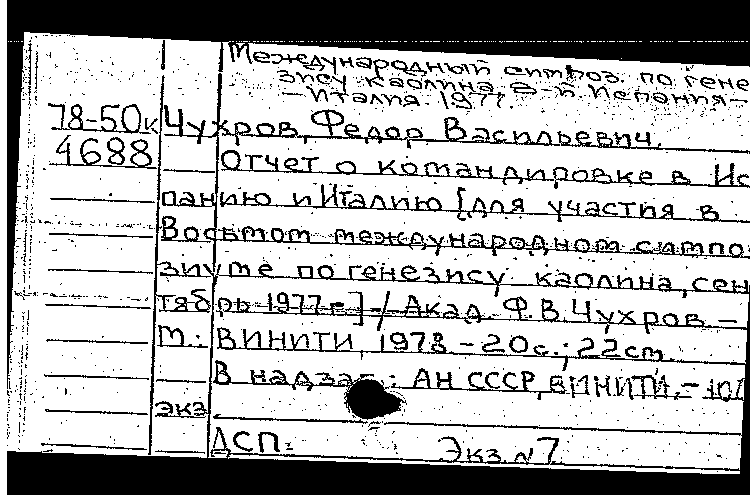 Международный симпоз. по гене
зису каолина, 8-й. Испания –
– Италия. 1977.
78-50к Чухров, Федор Васильевич.
4688 Отчет о командировке в Ис
панию и Италию [для участия в
Восьмом международном симпо
зиуме по генезису каолина, сен
тябрь 1977 г.] / Акад. Ф.В. Чухров –
М.: ВИНИТИ, 1978. – 20с.; 22см.
В надзаг.: АН СССР, ВИНИТИ. –
экз.
ДСП. Экз. №7